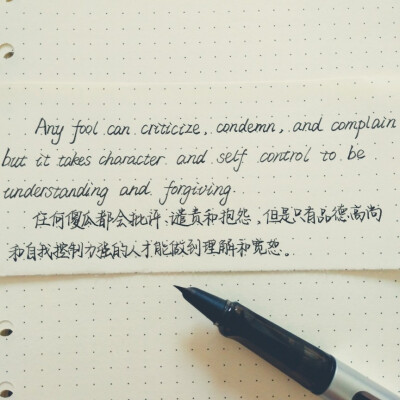 Any fool can criticize, condemn, and complain
but it takes character and self control to be
understanding and forgiving.
任何傻瓜都会批评、谴责和抱怨，但是只有品德高尚
和自我控制力强的人才能做到理解和宽恕。